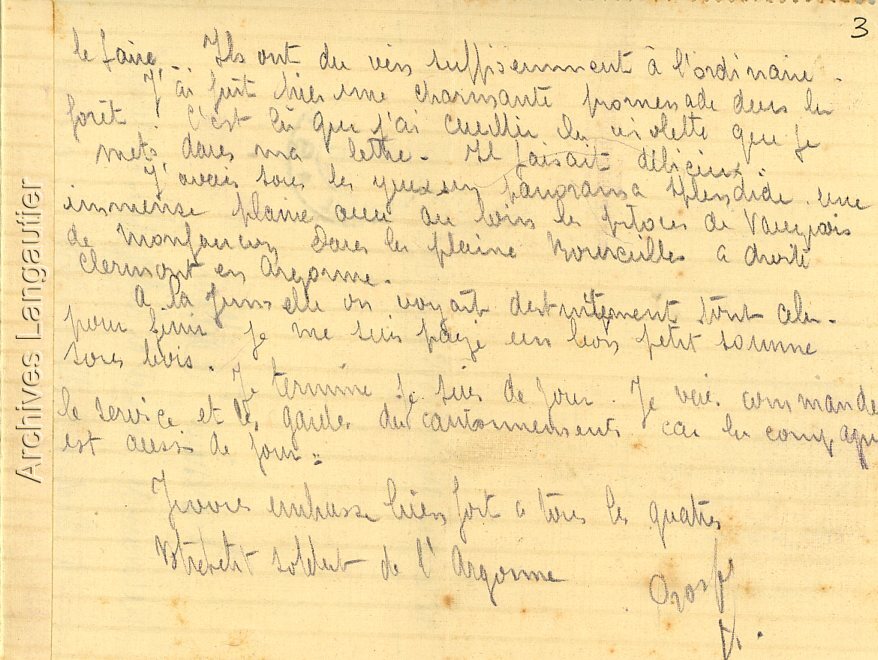 3
le faire. Ils ont du vin suffisemment à l'ordinaire.
J'ai fait hier une charmante promenade dans la
forêt. C'est là que j'ai cueilli la violette que je
mets dans ma lettre. Il faisait délicieux
J'avais sous les yeux un panorama splendide. une
immense plaine avec au loin les pitons de Vauquois
de Monfaucon, Dans la plaine Boureuilles a droite
Clermont en Argonne.
A la jumelle on voyait tout cela.
pour finir je me suis payé un bon petit somme
sous bois.
Je termine je suis de jour. Je vais commander
le service et les gardes du cantonnement car la compagnie
est aussi de jour.
Je vous embrasse bien fort a tous les quatres
Votre petit soldat de l'Argonne
Archives Langautier